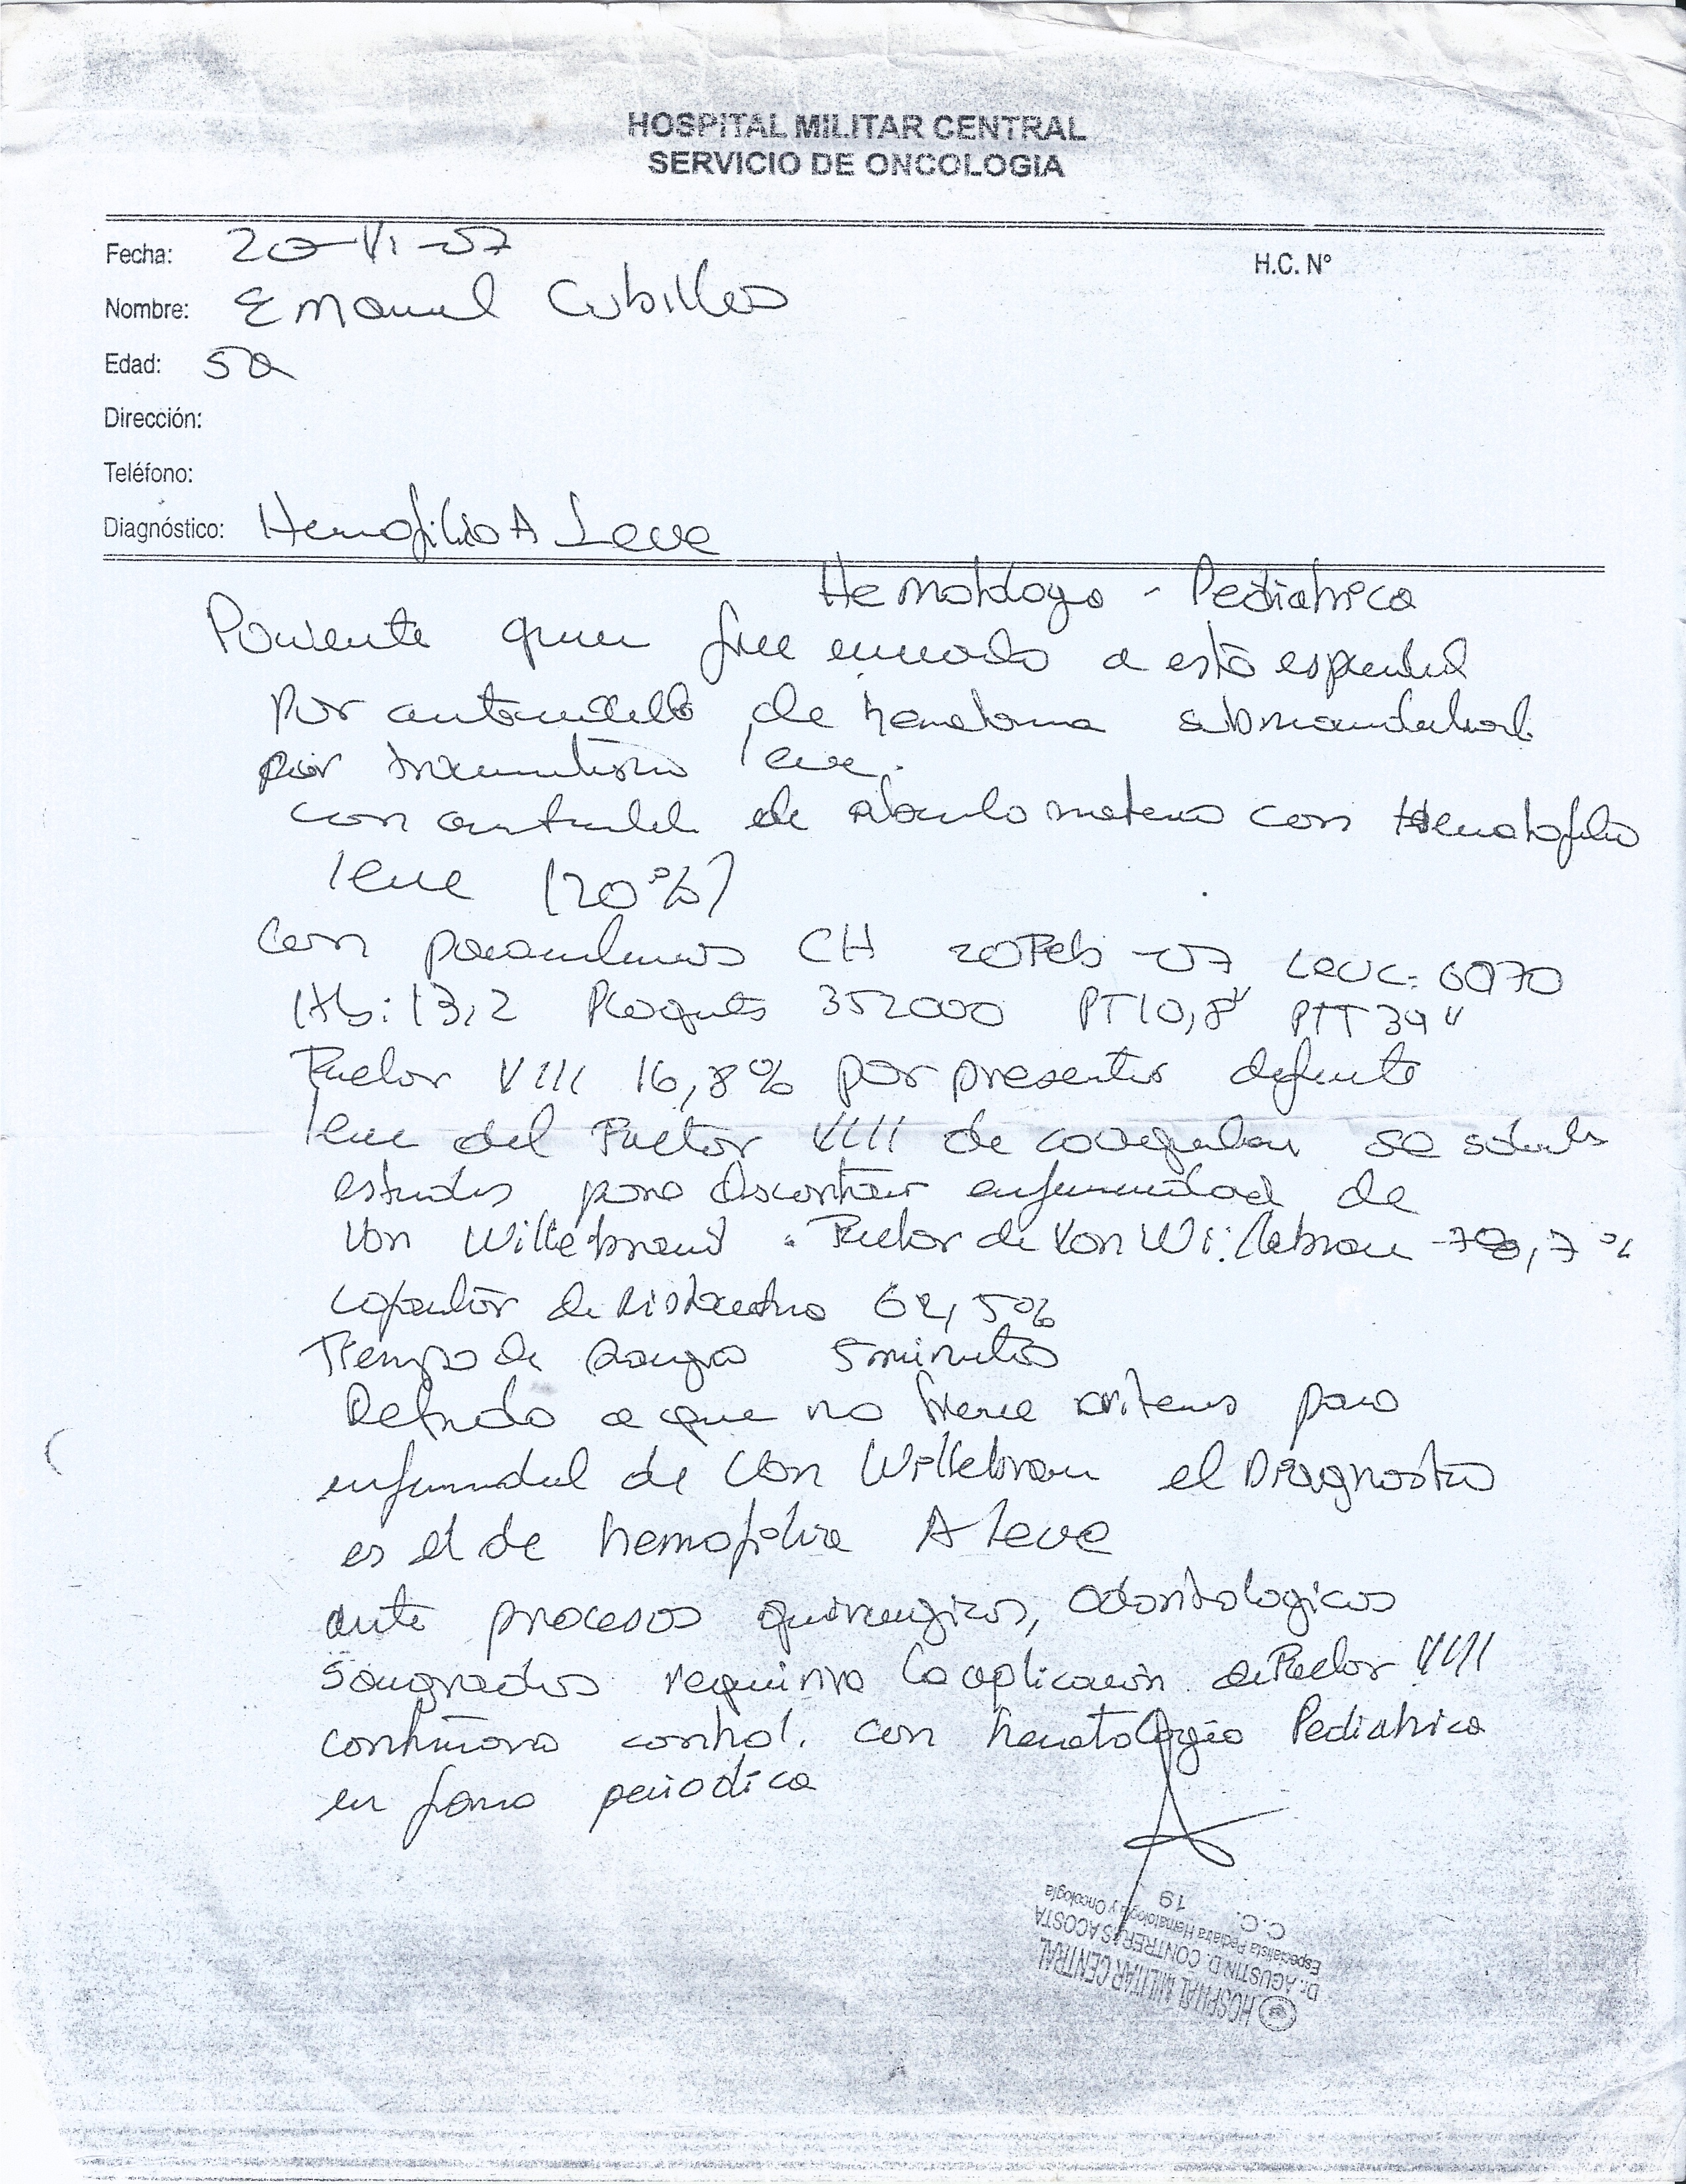 HOSPITAL MILITAR CENTRAL
SERVICIO DE ONCOLOGIA
Fecha: 20-VI-07
H.C. N°
Nombre: Emanuel Cubillos
Edad: 5a
Dirección:
Teléfono:
Diagnóstico: Hemofilia A Leve
Hematologo - Pediatrica
Paciente quien fue enviado a esta especialidad
por antecedente de hematoma submandibular
por traumatismo leve.
con de abuelo materno con
leve (20%)
con CH 20 Feb -07 Leuc: 6970
Hb: 13,2 Plaquetas 352000 PT 10,8" PTT 39"
Factor VIII 16,8% por presentar deficit
leve del Factor VIII de coagulacion se solicita
estudios para descartar enfermedad de
Von Willebrand . Factor de Von Willebran
Cofactor de Ristocetina 62,5%
Tiempo de sangria 5 minutos
Debido a que no tiene criterios para
enfermedad de Von Willebran el Diagnostico
es el de hemofilia A Leve
ante procesos quirurgicos, odontologicos
sangrados requirira la aplicacion de Factor VIII
continuara control. con hematologia Pediatrica
en forma periodica
HOSPITAL MILITAR CENTRAL
Dr. AGUSTIN D. CONTRERAS ACOSTA
Especialista Pediatra Hematología y Oncología
C.C. 19